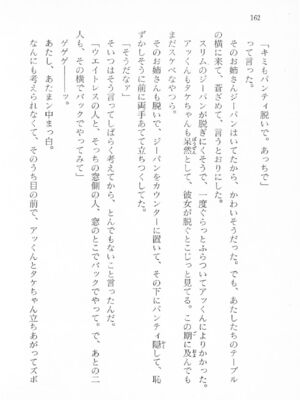 162
「キミもパンティ脱いで。あっちで」
そのお姉さんジーパンはいてたから、かわいそうだった。でも、あたしたちのテーブル
の横に来て、蒼ざめて、言うとおりにした。
スリムのジーパンが脱げにくそうで、一度ぐらっとふらついてアッくんによりかかった。
アッくんもタケちゃんも呆然として、彼女が脱ぐとこじっと見てる。この期に及んでも
まだスケベやるんだから。
そのお姉さんも脱いで、ジーパンをカウンターに置いて、その下にパンティ隠して、恥
ずかしそうに前に両手あてて立ちつくしてた。
「そうだなァ」
そいつはそう言ってしばらく考えてから、とんでもないこと言ったんだ。
「ウエイトレスの人と、そっちの窓側の人、窓のとこでバックでやって。で、あとの二
人も、その横でバックでやってみて」
ゲゲゲ――ッ。
あたし、あたまん中まっ白。
なんにも考えられなくて、そのうち目の前で、アッくんとタケちゃん立ちあがってズボ